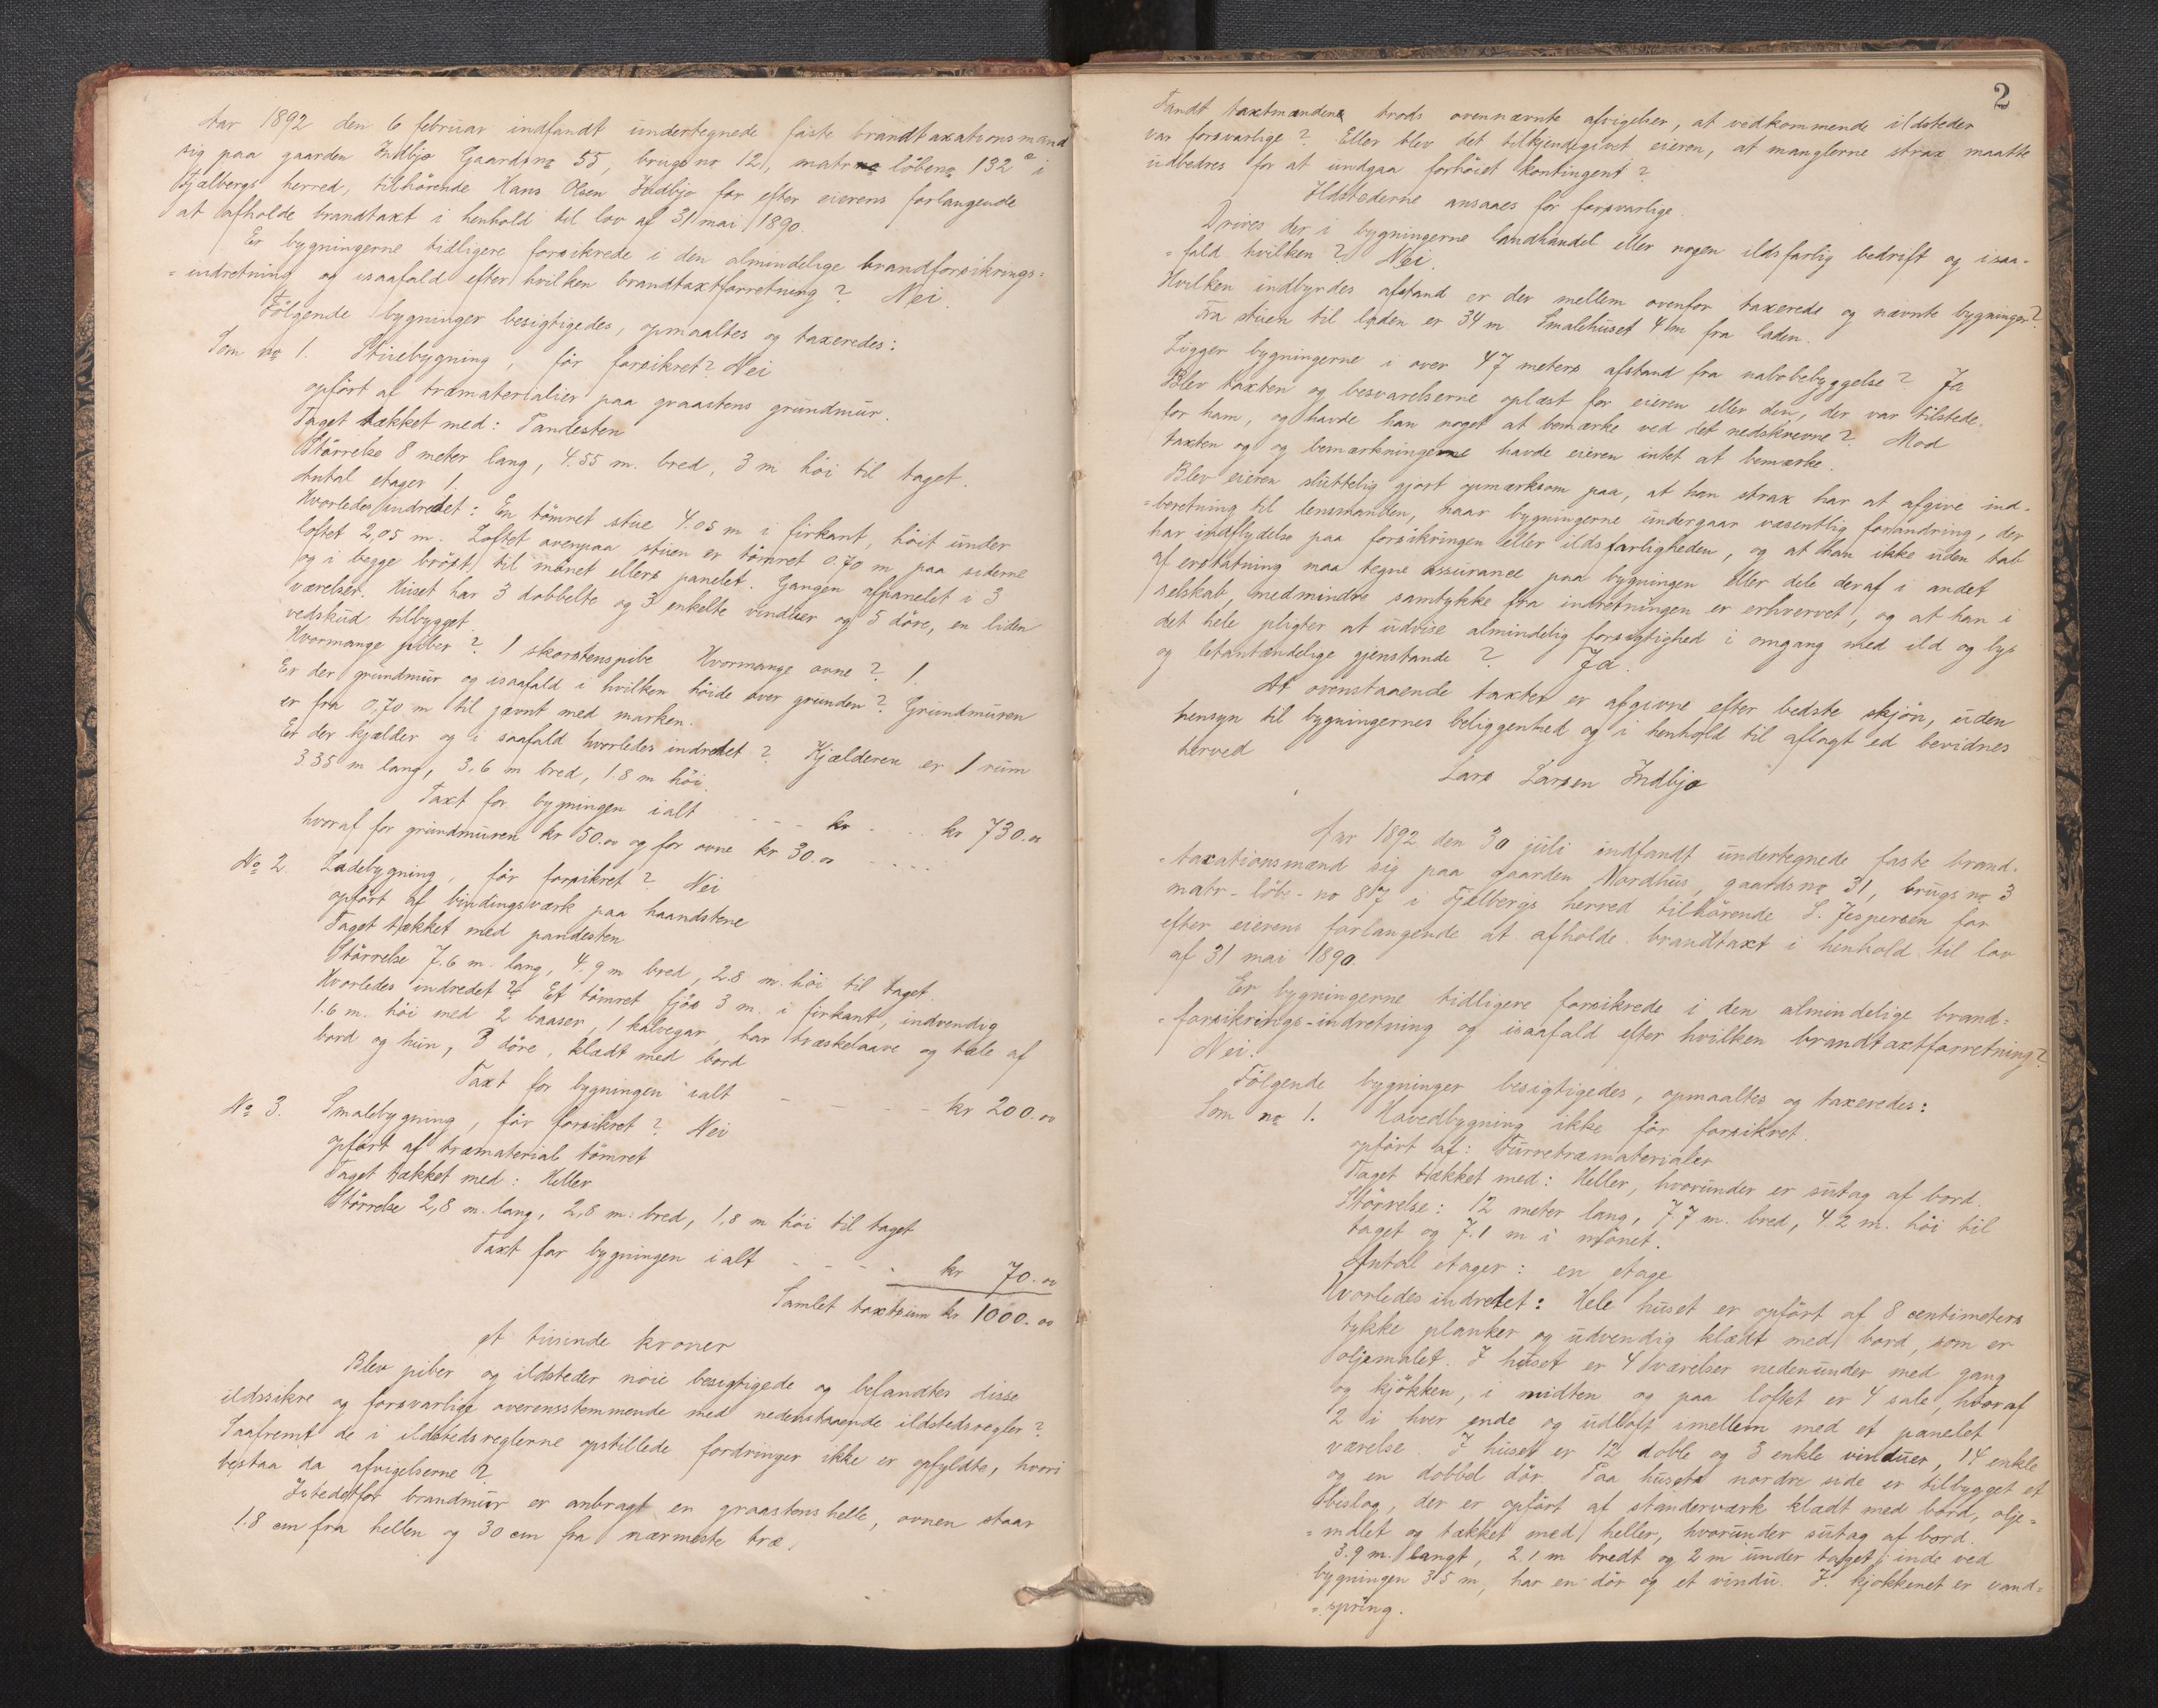 Aar 1892 den 6 februar indfandt undertegnede faste brandtaxationsmænd
sig paa gaarden Indbjo Gaardsno 55, brugsno 12, matr löbeno 132ª i
Fjælbergs herred, tilhörende Hans Olsen Indbjo for efter eierens forlangende
at afholde brandtaxt i henhold til lov af 31 mai 1890.
Er bygningerne tidligere forsikrede i den almindelige brandforsikrings=
=indretning og isaafald efter hvilken brandtaxtforretning? Nei.
Fölgende bygninger besigtigedes, opmaaltes og taxeredes:
Som no 1. Stuebygning, för forsikret? Nei
opfört af træmaterialier paa graastens grundmur.
Taget tækket med: Pandesten
Störrelse 8 meter lang, 4.55 m. bred, 3 m höi til taget.
Antal etager 1.
Hvorledes indredet: En tömret stue 4.05 m i firkant, höit under
loftet 2,05 m. Loftet ovenpaa stuen er tömret 0.70 m paa siderne
og i begge bröst til mönet ellers panelet. Gangen afpanelet i 3
værelser. Huset har 3 dobbelte og 3 enkelte vinduer og 5 döre, en liden
vedskud tilbygget.
Hvormange piber? 1 skorstenspibe Hvormange ovne? 1.
Er der grundmur og isaafald i hvilken höide over grunden? Grundmuren
er fra 0,70 m til jævnt med marken.
Er der kjælder og i saafald hvorledes indredet? Kjælderen er 1 rum
3.35 m lang, 3.6 m bred, 1.8 m höi.
Taxt for bygningen ialt - - - - kr - . . . kr 730.00
hvoraf for grundmuren kr 50.00 og for ovne kr 30.00 - - - -
No 2. Ladebygning, för forsikret? Nei
opfört af bindingsværk paa haandstene
Taget tækket med pandesten
Störrelse 7.6 m. lang, 4.9 m bred, 2.8 m. höi til taget.
Hvorledes indredet? Et tömret fjös 3 m. i firkant, indvendig
1.6 m. höi med 2 baaser, 1 kalvegar, har træskelaave og tæle af
bord og hun, 3 döre, klædt med bord
Taxt for bygningen ialt - - - - - kr 200.00
No 3. Smalebygning, för forsikret? Nei
opfört af træmaterial tömret
Taget tækket med: Heller
Störrelse 2,8 m. lang, 2,8 m. bred, 1,8 m höi til taget
Taxt for bygningen ialt - - - - kr 70.00
Samlet taxtsum kr 1000.00
et tusinde kroner
Blev piber og ildsteder nöie besigtigede og befandtes disse
ildssikre og forsvarlige overensstemmende med nedenstaaende ildstedsregler?
Saafremt de i ildstedsreglerne opstillede fordringer ikke er opfyldte, hvori
bestaa da afvigelserne?
Istedetfor brandmur er anbragt en graastenshelle, ovnen staar
1.8 cm fra hellen og 30 cm fra nærmeste træ.
2
Fandt taxtmændene trods ovennævnte afvigelser, at vedkommende ildsteder
var forsvarlige? Eller blev det tilkjendegivet eieren, at manglerne strax maatte
udbedres for at undgaa forhöiet kontingent?
Ildstederne ansaaes for forsvarlige.
Drives der i bygningerne landhandel eller nogen ildsfarlig bedrift og isaa-
=fald hvilken? Nei.
Hvilken indbyrdes afstand er der mellem ovenfor taxerede og nævnte bygninger?
Fra stuen til laden er 34 m Smalehuset 4 m fra laden.
Ligger bygningerne i over 47 meters afstand fra nabobebyggelse? Ja
Blev taxten og besvarelserne oplæst for eieren eller den, der var tilstede
for ham, og havde han noget at bemærke ved det nedskrevne? Mod
taxten og og bemærkningerne havde eieren intet at bemærke.
Blev eieren sluttelig gjort opmærksom paa, at han strax har at afgive ind-
=beretning til lensmanden, naar bygningerne undergaar væsentlig forandring, der
har indflydelse paa forsikringen eller ildsfarligheden, og at han ikke uden tab
af erstatning maa tegne assurance paa bygningen eller dele deraf i andet
selskab, medmindre samtykke fra indretningen er erhvervet, og at han i
det hele pligter at udvise almindelig forsigtighed i omgang med ild og lys
og letantændelige gjenstande? Ja.
At ovenstaaende taxter er afgivne efter bedste skjön, uden
hensyn til bygningernes beliggenhed og i henhold til aflagt ed bevidnes
herved
Lars Larsen Indbjo
Aar 1892 den 30 juli indfandt undertegnede faste brand-
=taxationsmænd sig paa gaarden Nordhus, gaardsno 31, brugsno 3
matr-löbe-no 87 i Fjelbergs herred tilhörende S. Jespersen for
efter eierens forlangende at afholde brandtaxt i henhold til lov
af 31 mai 1890.
Er bygningerne tidligere forsikrede i den almindelige brand=
=forsikrings-indretning og isaafald efter hvilken brandtaxtforretning?
Nei.
Fölgende bygninger besigtigedes, opmaaltes og taxeredes:
Som no 1. Hovedbygning ikke för forsikret.
opfört af: Furretræmaterialer
Taget tækket med: Heller, hvorunder er sutag af bord.
Störrelse: 12 meter lang, 7.7 m. bred, 4.2 m. höi til
taget og 7.1 m i mönet.
Antal etager: en etage
Hvorledes indredet: Hele huset er opfört af 8 centimeters
tykke planker og udvendig klædt med bord, som er
oljemalet. I huset er 4 værelser nedenunder med gang
og kjökken, i midten og paa loftet er 4 sale, hvoraf
2 i hver ende og udloft imellem med et panelet
værelse. I huset er 12 doble og 3 enkle vinduer, 14 enkle
og en dobbel dör. Paa husets nordre side er tilbygget et
bislag, der er opfört af standerværk klædt med bord, olje=
=malet og tækket med heller, hvorunder sutag af bord.
3.9 m. langt, 2.1 m bredt og 2 m under taget, inde ved
bygningen 3.5 m, har en dör og et vindu. I kjökkenet er vand=
=spring.